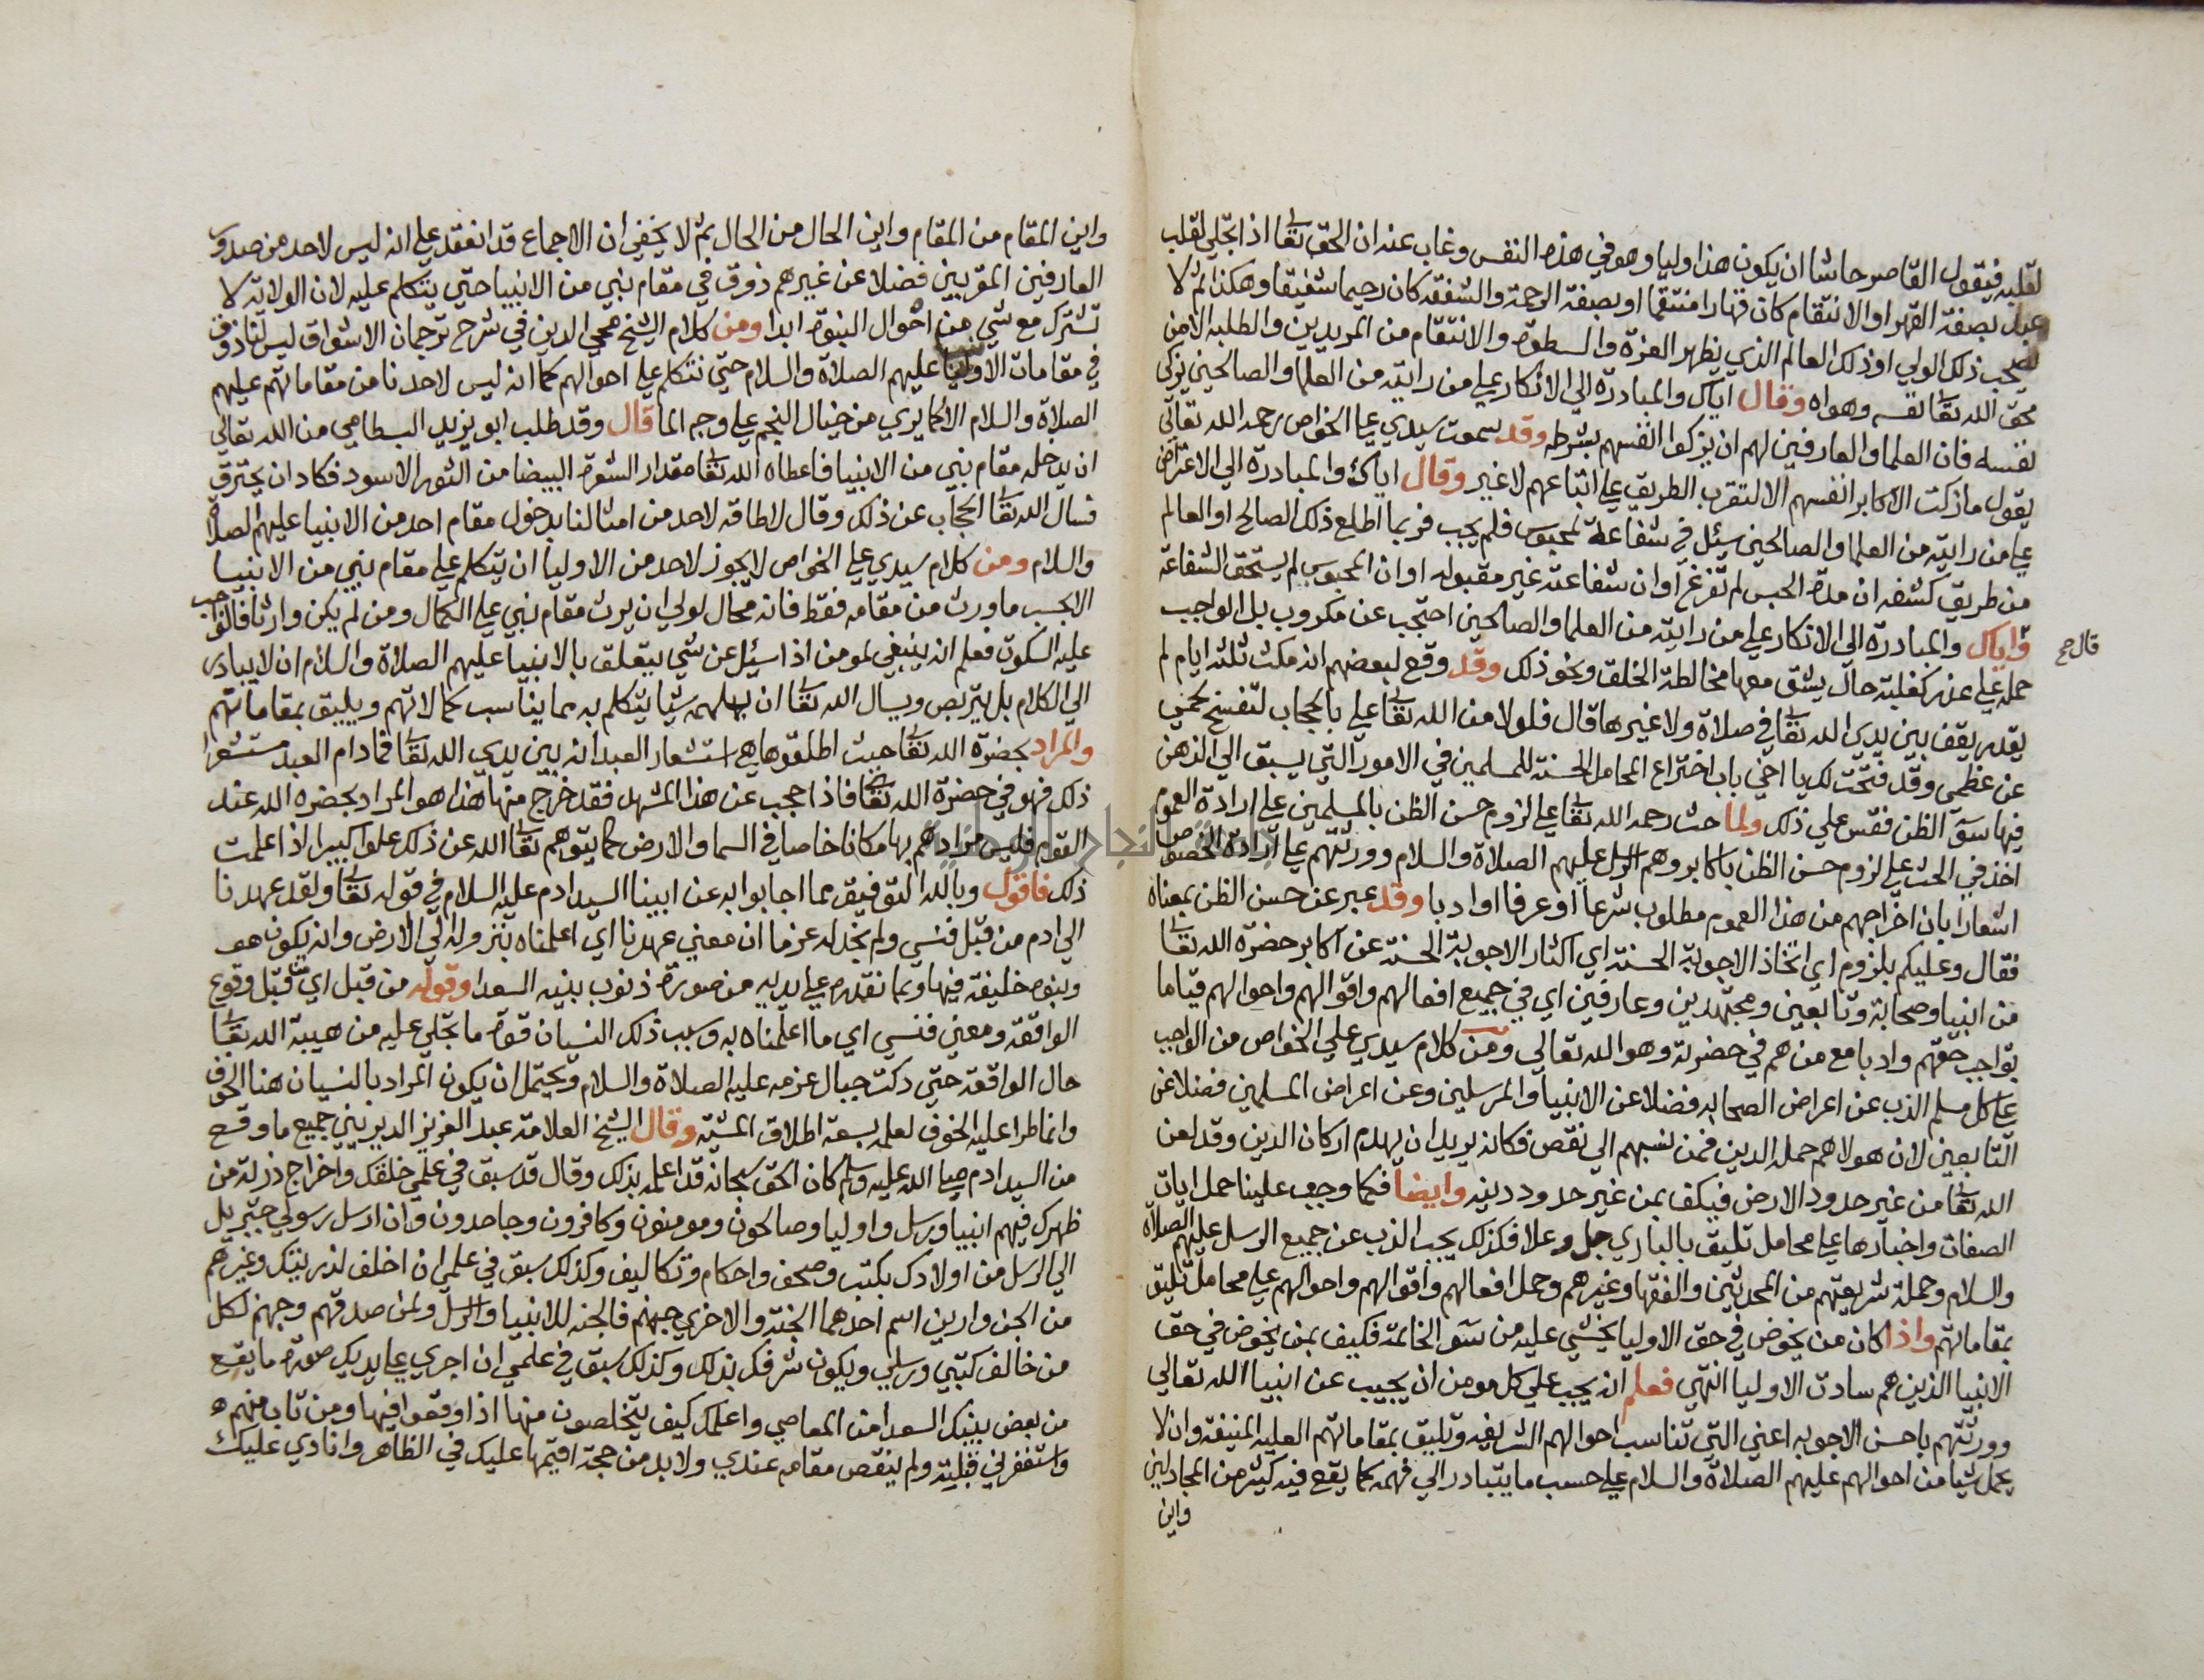 لقلبه فيقول القاصر حاشا ان يكون هذا وليا وهو في هذه النفس وغاب عنه ان الحق تعا اذا تجلي لقلب
عبد بصفة القهر او الانتقام كان قهارا منتقما او بصفة الرحمة والشفقه كان رحيما شفيقا وهكذا ثم لا
يصحب ذلك الولي او ذلك العالم الذي يظهر العزة والسطوة والانتقام من المريدين والطلبه الا من
محق الله تعا نفسه وهواه وقال اياك والمبادرة الي الانكار علي من رايته من العلما والصالحين يزكي
نفسه فان العلما والعارفين لهم ان يزكوا انفسهم بشرطه وقد سمعت سيدي عليا الخواص رحمه الله تعالي
يقول ما زكت الاكابر انفسهم الا لتقرب الطريق علي اتباعهم لا غير وقال اياك والمبادرة الي الاعتراض
علي من رايته من العلما والصالحين سيئل في شفاعة لمحبوس فلم يجب فربما اطلع ذلك الصالح او العالم
من طريق كشفه ان مدة الحبس لم تفرغ او ان شفاعته غير مقبوله او ان المحبوس لم يستحق الشفاعة
قال ح
واياك والمبادرة الي الانكار علي من رايته من العلما والصالحين احتجب عن مكروب بل الواجب
حمله علي عذر كغلبة حال يشق معها مخالطة الخلق ونحو ذلك وقد وقع لبعضهم انه مكث ثلثة ايام لم
يقدر يقف بين يدي الله تعا في صلاة ولا غيرها قال فلولا من الله تعا علي بالحجاب لتفسخ لحمي
عن عظمي وقد فتحت لك يا اخي باب اختراع المحامل الحسنة للمسلمين في الامور التي يسبق الي الذهن
فيها سوء الظن فقس علي ذلك ولما حث رحمه الله تعا علي لزوم حسن الظن بالمسلمين علي ارادة العموم
اخذ في الحث علي لزوم حسن الظن باكابر وهم الرسل عليهم الصلاة والسلام وورثتهم علي ارادة الخصوص
اشعارا بان اخراجهم من هذا العموم مطلوب شرعا او عرفا او ادبا وقد عبر عن حسن الظن بمعناه
فقال وعليكم بلزوم اي اتخاذ الاجوبة الحسنة اي اكثار الاجوبة الحسنة عن اكابر حضرة الله تعا
من انبيا وصحابة وتابعين ومجتهدين وعارفين اي في جميع افعالهم واقوالهم واحوالهم قياما
بواجب حقهم وادبا مع من هم في حضرته وهو الله تعالي ومن كلام سيدي علي الخواص من الواجب
علي كل مسلم الذب عن اعراض الصحابه فضلا عن الانبيا والمرسلين وعن اعراض المسلمين فضلا عن
التابعين لان هولا هم حملة الدين فمن نسبهم الي نقص فكانه يريد ان يهدم اركان الدين وقد لعن
الله تعا من غير حدود الارض فكيف بمن غير حدود دينه وايضا فكما وجب علينا حمل ايات
الصفات واخبارها علي محامل تليق بالباري جل وعلا فكذلك يجب الذب عن جميع الرسل عليهم الصلاة
والسلام وحملة شريعتهم من المحدثين والفقها وغيرهم وحمل افعالهم واقوالهم واحوالهم علي محامل تليق
بمقاماتهم واذا كان من يخوض في حق الاوليا يخشي عليه من سوء الخاتمة فكيف بمن يخوض في حق
الانبيا الذين هم سادت الاوليا انتهي فعلم انه يجب علي كل مومن ان يجيب عن انبيا الله تعالي
وورثتهم باحسن الاجوبه اعني التي تناسب احوالهم الشريفه وتليق بمقاماتهم العليه المنيفة وان لا
يحمل شيا من احوالهم عليهم الصلاة والسلام علي حسب ما يتبادر الي فهمه كما يقع فيه كثير من المجادلين
واين
واين المقام من المقام واين الحال من الحال ثم لا يخفي ان الاجماع قد انعقد علي انه ليس لاحد من صدور
العارفين المقربين فضلا عن غيرهم ذوق في مقام نبي من الانبيا حتي يتكلم عليه لان الولاية لا
تشترك مع شي من احوال النبوة ابدا ومن كلام الشيخ محيي الدين في شرح ترجمان الاشواق ليس لنا ذوق
في مقامات الانبيا عليهم الصلاة والسلام حتي نتكلم علي احوالهم كما انه ليس لاحدنا من مقاماتهم عليهم
الصلاة والسلام الا كما يري من خيال النجم علي وجه الما قال وقد طلب ابو يزيد البسطامي من الله تعالي
ان يدخله مقام نبي من الانبيا فاعطاه الله تعا مقدار الشعرة البيضا من الثور الاسود فكاد ان يحترق
فسال الله تعا الحجاب عن ذلك وقال لا طاقه لاحد من امثالنا بدخول مقام احد من الانبيا عليهم الصلاة
والسلام ومن كلام سيدي علي الخواص لا يجوز لاحد من الاوليا ان يتكلم علي مقام نبي من الانبيا
الا بحسب ما ورث من مقامه فقط فانه محال لولي ان يرث مقام نبي علي الكمال ومن لم يكن وارثا فالواجب
عليه السكوت فعلم انه ينبغي لمومن اذا سيئل عن شي يتعلق بالانبيا عليهم الصلاة والسلام ان لا يبادر
الي الكلام بل يتربص ويسال الله تعا ان يلهمه شيا يتكلم به مما يناسب كمالاتهم ويليق بمقاماتهم
والمراد بحضرة الله تعا حيث اطلقوها هي استشعار العبد انه بين يدي الله تعا فمادام العبد مستشعرا
ذلك فهو في حضرة الله تعا فاذا حجب عن هذا المشهد فقد خرج منها هذا هو المراد بحضره الله عند
القوم فليس مرادهم بها مكانا خاصا في السما والارض كما يتوهم تعا الله عن ذلك علوا كبيرا اذا علمت
ذلك فاقول وبالله التوفيق مما اجابوا به عن ابينا السيد ادم عليه السلام في قوله تعا ولقد عهدنا
الي ادم من قبل فنسي ولم نجد له عزما ان معني عهدنا اي اعلمناه بنزوله الي الارض وانه يكون هو
وبنوه خليفة فيها وبما نقدره علي يديه من صورة ذنوب بنيه السعدا وقوله من قبل اي قبل وقوع
الواقعة ومعني فنسي اي ما اعلمناه به وسبب ذلك النسيان قوة ما تجلي عليه من هيبة الله تعا
حال الواقعة حتي دكت جبال عزمه عليه الصلاة والسلام ويحتمل ان يكون المراد بالنسيان هنا الخوف
وانما طرا عليه الخوف لعلمه بسعة اطلاق المشية وقال الشيخ العلامة عبد العزيز الديريني جميع ما وقع
من السيد ادم صلي الله عليه وسلم كان الحق سبحانه قد اعلمه بذلك وقال قد سبق في علمي خلقك واخراج ذرية من
ظهرك فيهم انبيا ورسل واوليا وصالحون ومومنون وكافرون وجاحدون وان ارسل رسولي جبريل
الي الرسل من اولادك بكتب وصحف واحكام وتكاليف وكذلك سبق في علمي ان اخلف لذريتك وغيرهم
من الجن دارين اسم احدهما الجنة والاخري جهنم فالجنه للانبيا والرسل ولمن صدقهم وجهنم لكل
من خالف كتبي ورسلي ويكون شرفك بذلك وكذلك سبق في علمي ان اجري علي يديك صورة ما يقع
من بعض بنيك السعدا من المعاصي واعلمك كيف يتخلصون منها اذا وقعوا فيها ومن تاب منهم
واستغفرني قبلته ولم ينقص مقامه عندي ولا بد من حجة اقيمها عليك في الظاهر وانادي عليك